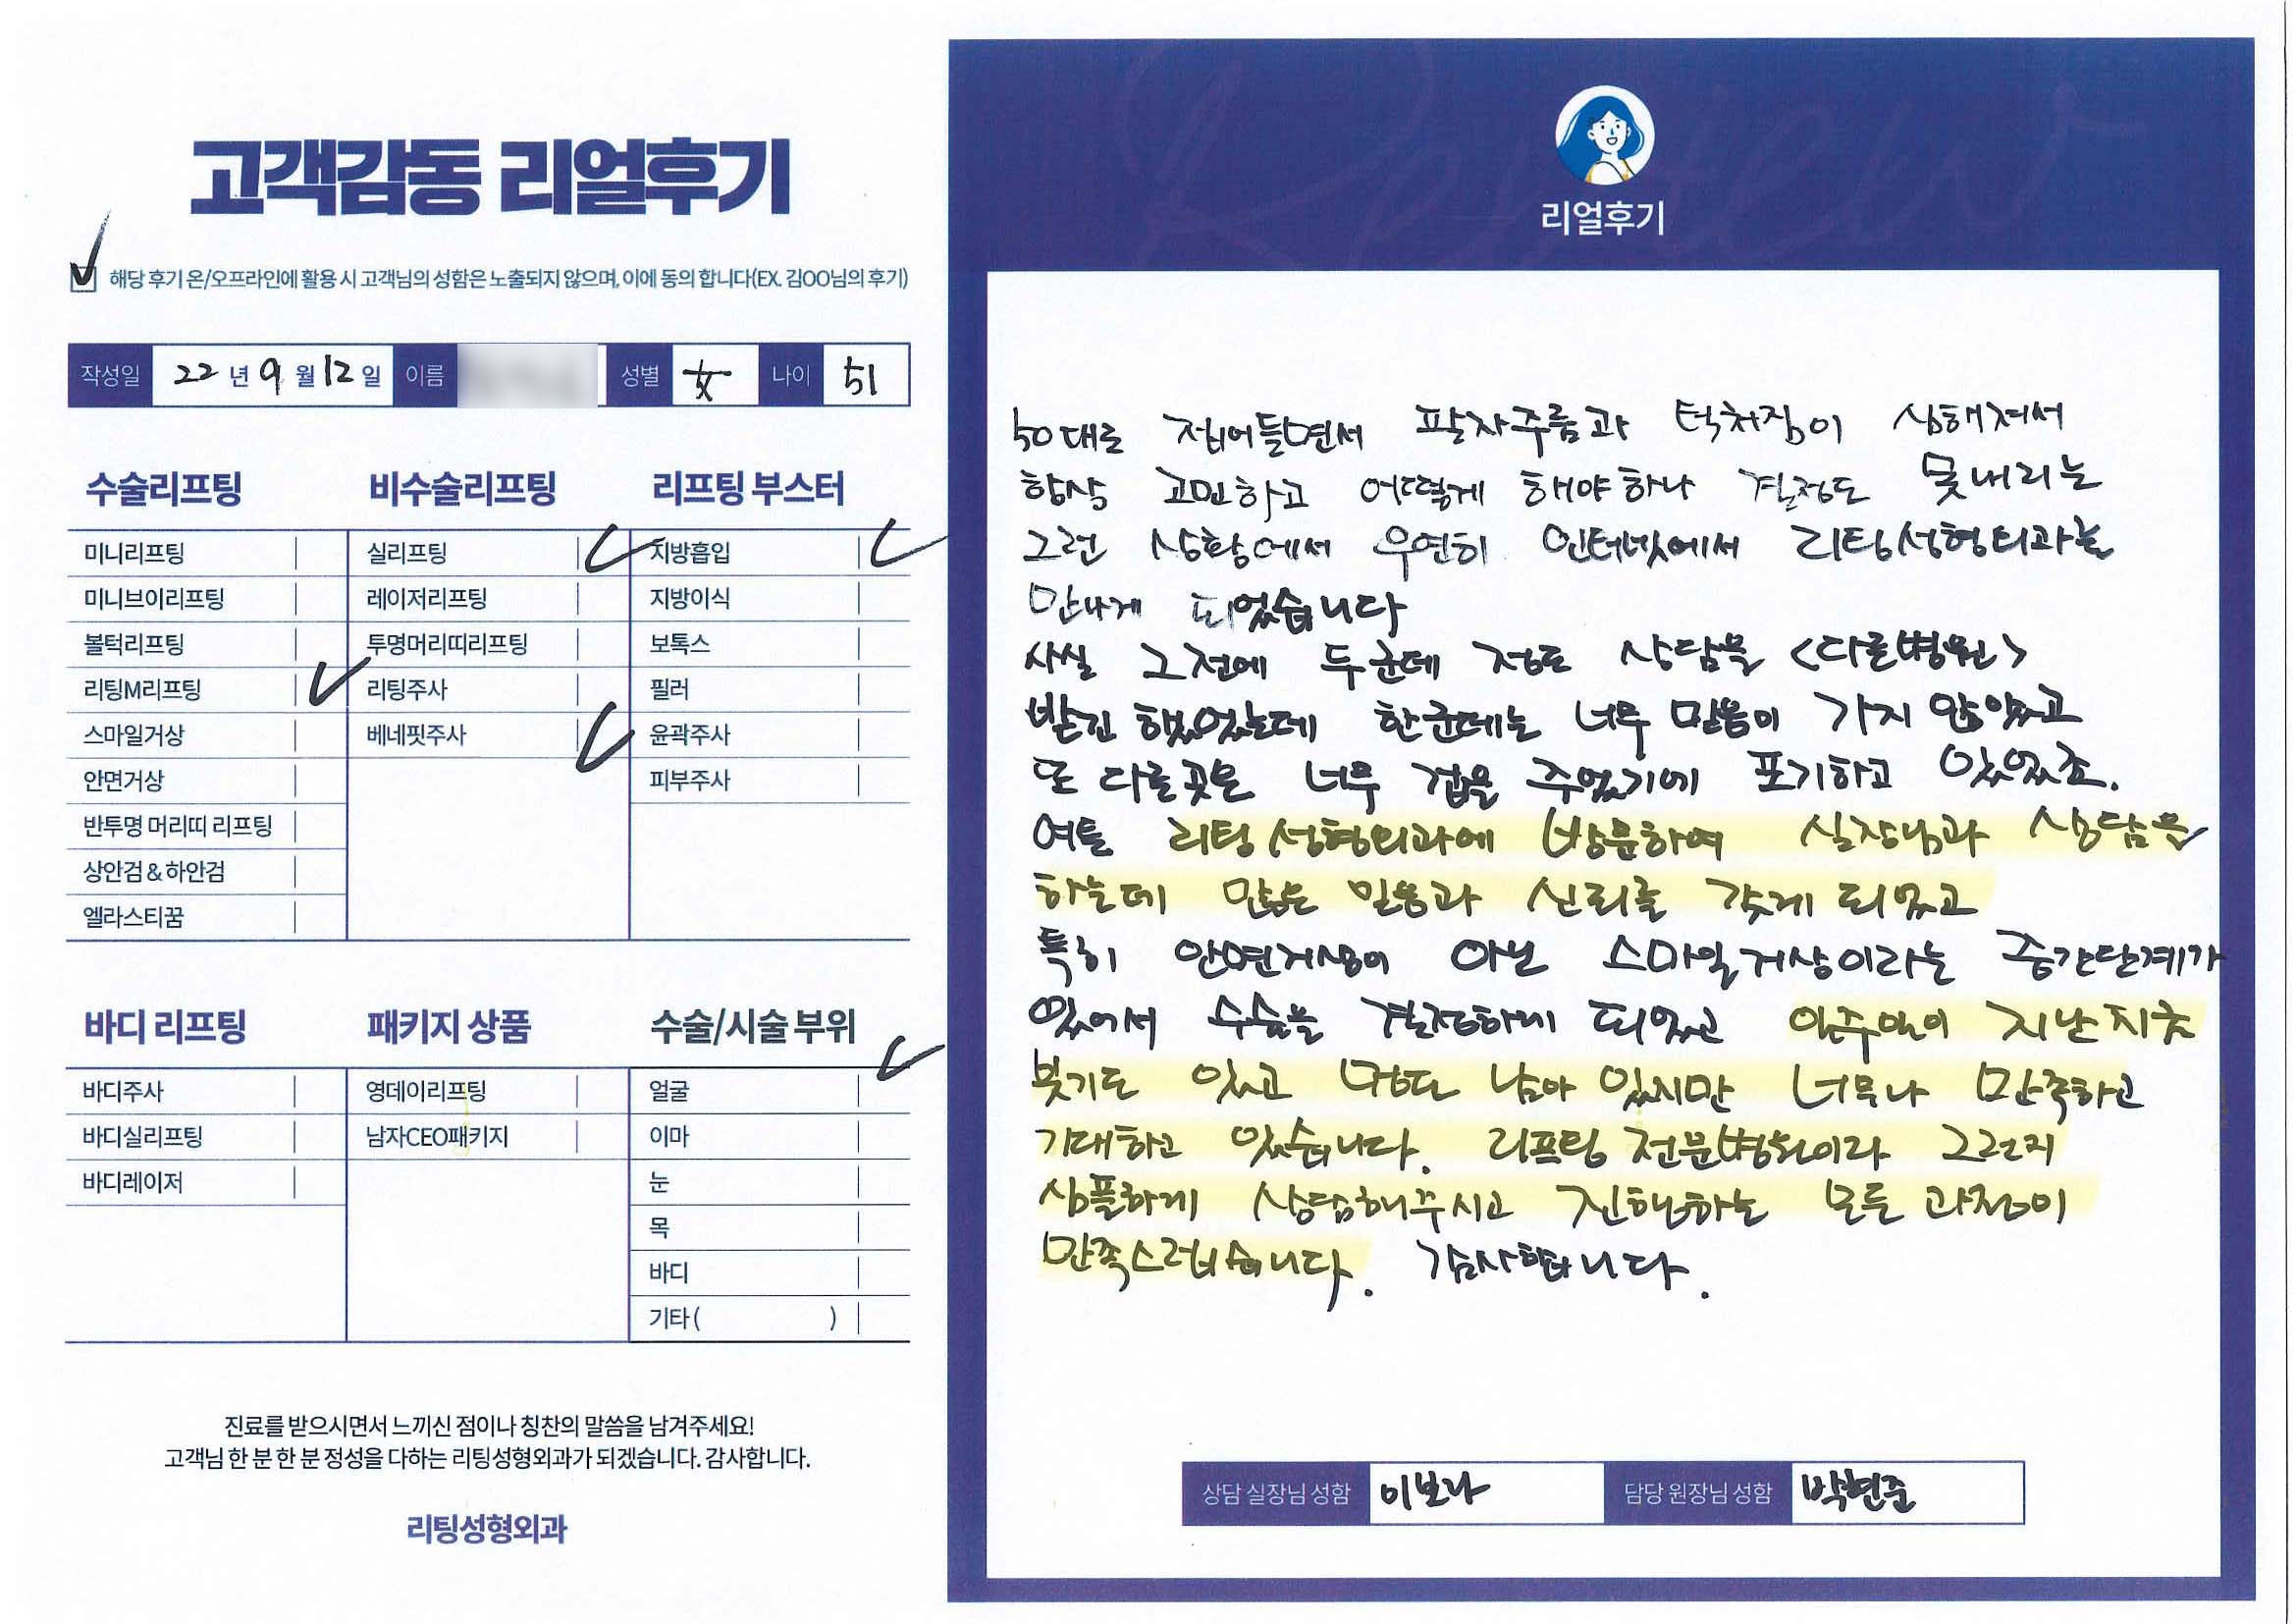 고객감동 리얼후기
해당 후기 온/오프라인에 활용 시 고객님의 성함은 노출되지 않으며, 이에 동의 합니다(EX. 김OO님의 후기)
작성일 22년 9월 12일 이름 성별 女 나이 51
수술리프팅
미니리프팅
미니브이리프팅
볼턱리프팅
리팅M리프팅
스마일거상
안면거상
반투명 머리띠 리프팅
상안검 & 하안검
엘라스티꿈
비수술리프팅
실리프팅
레이저리프팅
투명머리띠리프팅
리팅주사
베네핏주사
리프팅 부스터
지방흡입
지방이식
보톡스
필러
윤곽주사
피부주사
바디 리프팅
바디주사
바디실리프팅
바디레이저
패키지 상품
영데이리프팅
남자CEO패키지
수술/시술 부위
얼굴
이마
눈
목
바디
기타 ( )
진료를 받으시면서 느끼신 점이나 칭찬의 말씀을 남겨주세요!
고객님 한 분 한 분 정성을 다하는 리팅성형외과가 되겠습니다. 감사합니다.
리팅성형외과
Review
리얼후기
50대로 접어들면서 팔자주름과 턱처짐이 심해져서
항상 고민하고 어떻게 해야하나 결정도 못내리는
그런 상황에서 우연히 인터넷에서 리팅성형외과를
만나게 되었습니다
사실 그전에 두군데 정도 상담을 <다른병원>
받긴 했었었는데 한군데는 너무 믿음이 가지 않았고
또 다른곳은 너무 겁을 주었기에 포기하고 있었죠.
여튼 리팅성형외과에 방문하여 실장님과 상담을
하는데 많은 믿음과 신뢰를 갖게 되었고
특히 안면거상이 아닌 스마일거상이라는 중간단계가
있어서 수술을 결정하게 되었고 일주일이 지난 지금
붓기도 있고 멍도 남아 있지만 너무나 만족하고
기대하고 있습니다. 리프팅 전문병원이라 그런지
심플하게 상담해주시고 진행하는 모든 과정이
만족스럽습니다. 감사합니다.
상담 실장님 성함 이보라 담당 원장님 성함 박현준